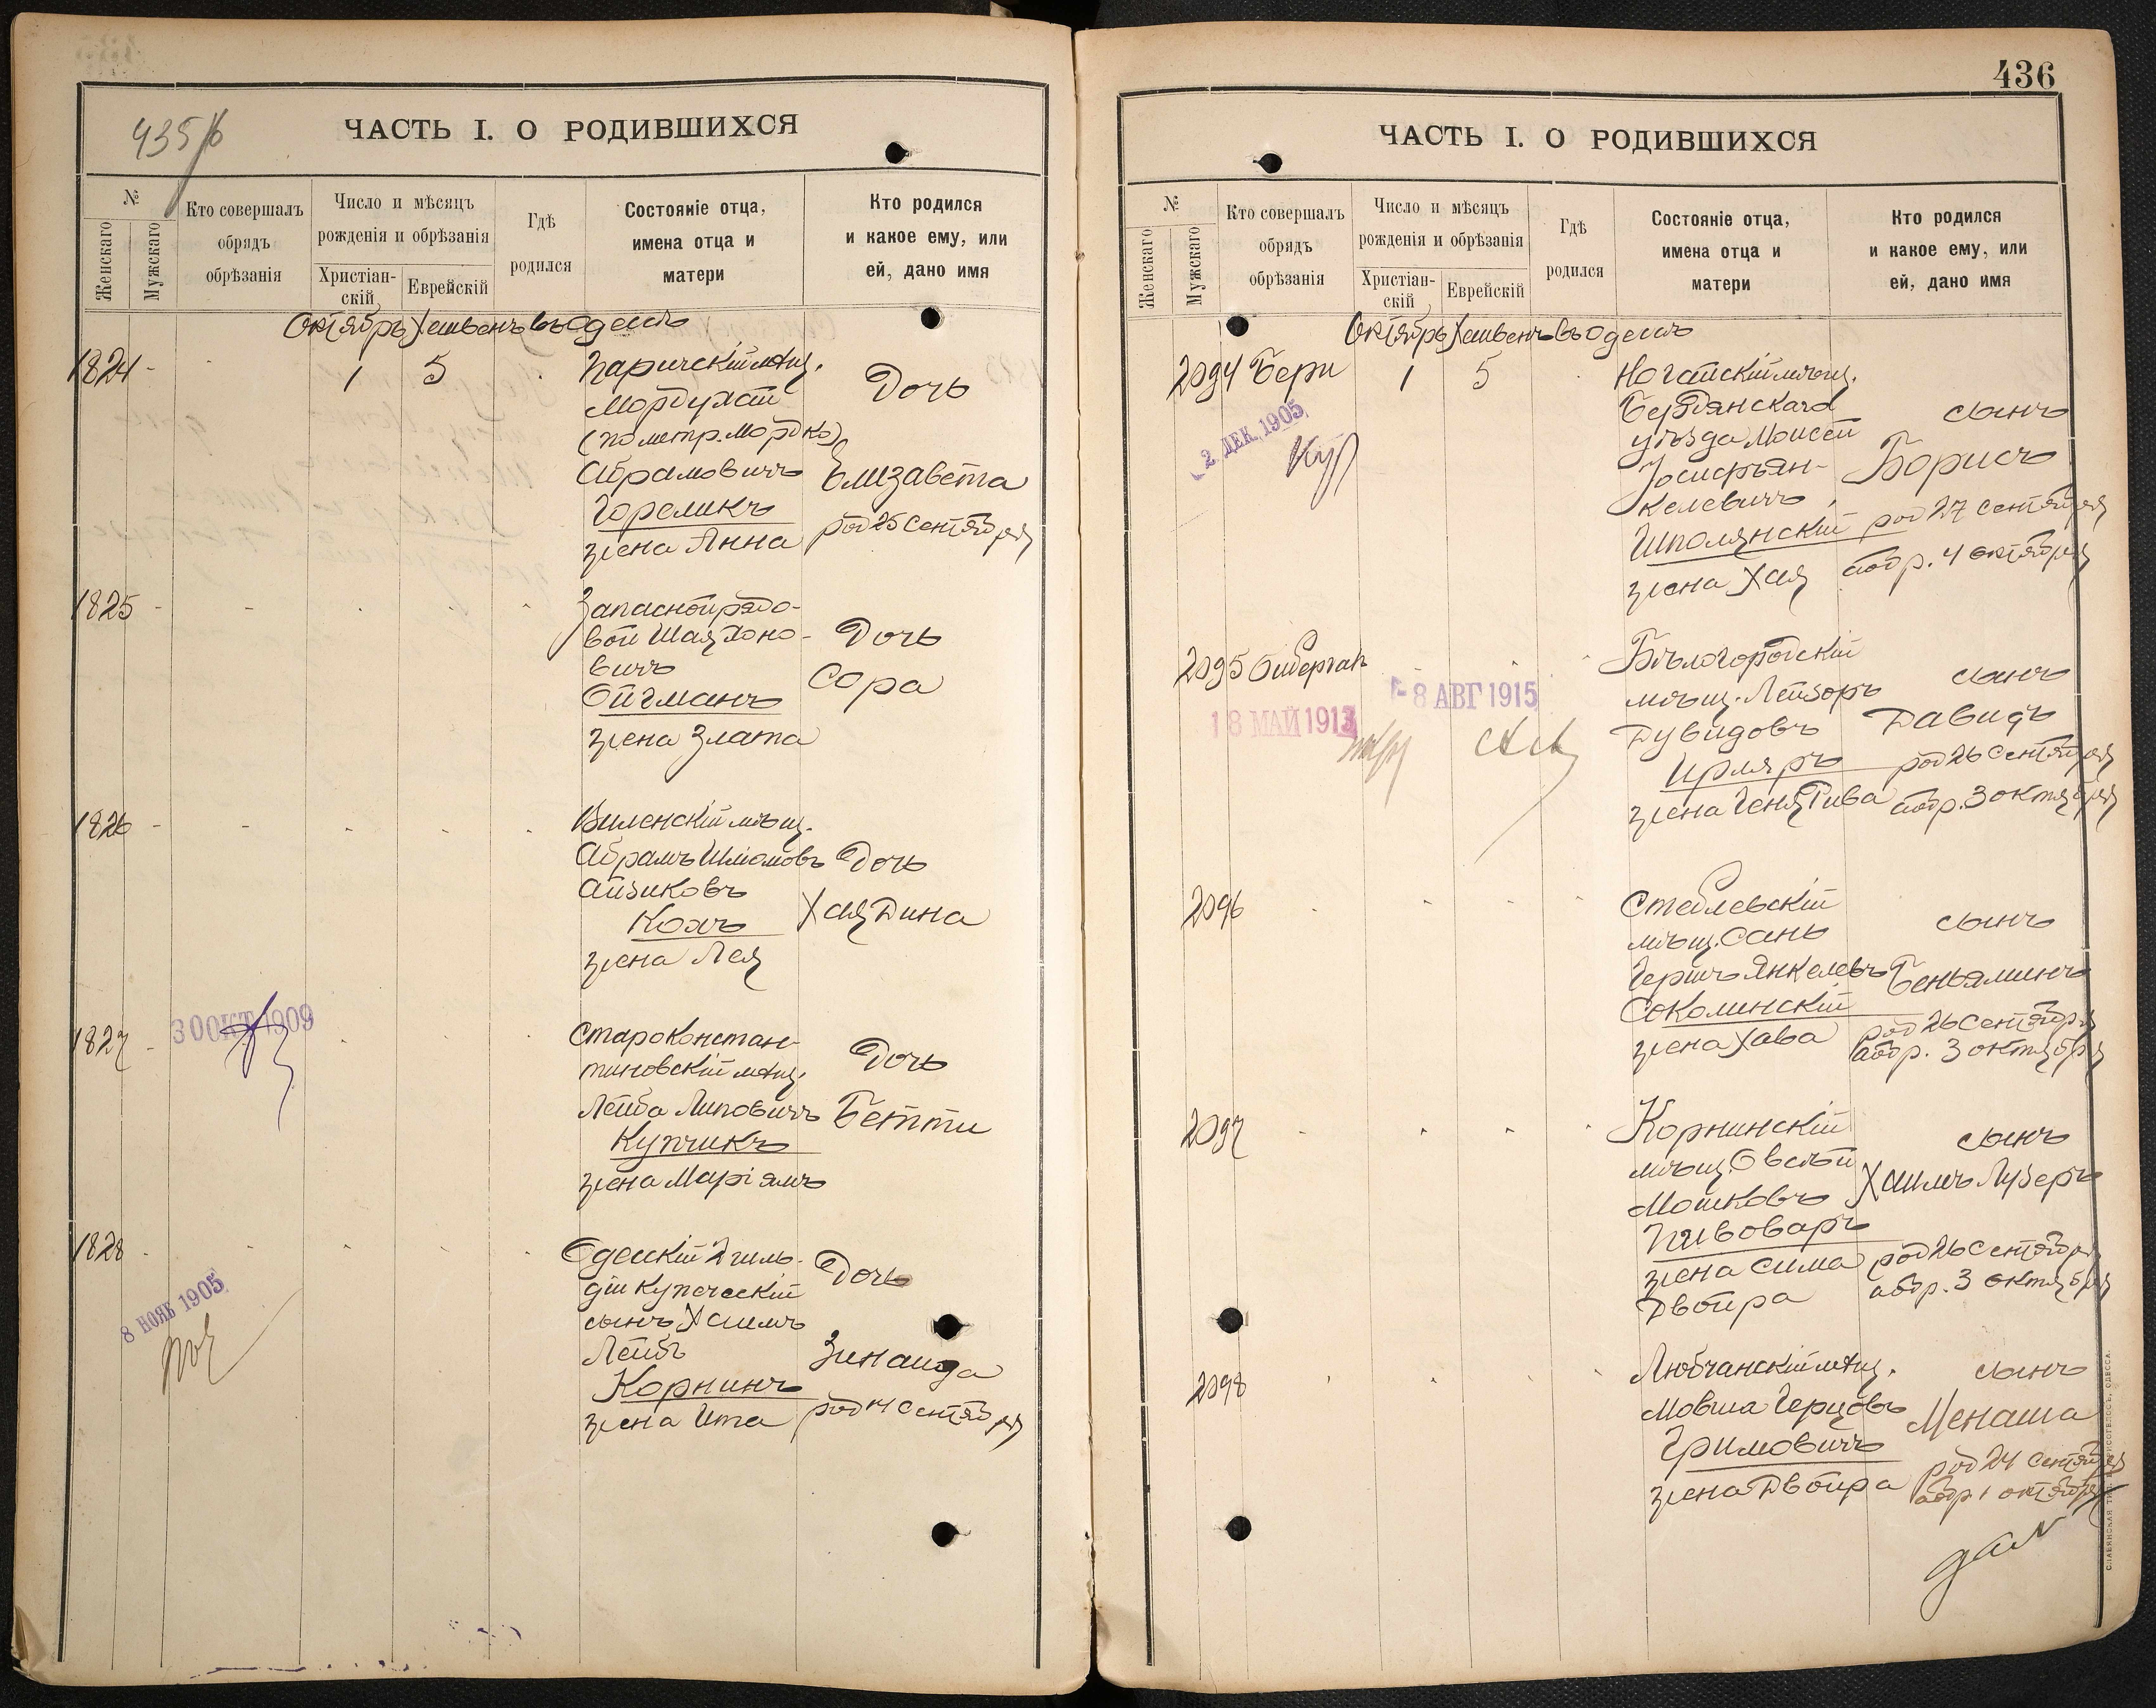 435/б
ЧАСТЬ I. О РОДИВШИХСЯ
№
Женскаго
Мужскаго
Кто совершалъ
обрядъ
обрѣзанія
Число и мѣсяцъ
рожденія и обрѣзанія
Христіан-
скій
Еврейскій
Гдѣ
родился
Состояніе отца,
имена отца и
матери
Кто родился
и какое ему, или
ей, дано имя
Октябрь Хешвенъ въ Одессѣ
1824 - 1 5
Паричскій мѣщ.
Мордухай
(по метр. Мордко)
Абрамовичъ
Гореликъ
жена Анна
Дочь
Елизавета
род 25 Сентября
1825 -
Запасной рядо-
вой Шая Хоно-
вичъ
Ойгманъ
жена Злата
Дочь
Сора
1826 -
Виленскій мѣщ.
Абрамъ Шліомовъ
Айзиковъ
Кохъ
жена Лея
Дочь
Хая Дина
1827 -
30 ОКТ 1909
Староконстан-
тиновскій мѣщ.
Лейба Липовичъ
Купчикъ
жена Маріямъ
Дочь
Бетти
1828 -
8 НОЯБ 1905
Одесскій 2 гиль-
діи купеческій
сынъ Хаимъ
Лейбъ
Корнинъ
жена Ита
Дочь
Зинаида
род 14 Сентября
436
ЧАСТЬ I. О РОДИВШИХСЯ
№
Женскаго
Мужскаго
Кто совершалъ
обрядъ
обрѣзанія
Число и мѣсяцъ
рожденія и обрѣзанія
Христіан-
скій
Еврейскій
Гдѣ
родился
Состояніе отца,
имена отца и
матери
Кто родился
и какое ему, или
ей, дано имя
Октябрь Хешвенъ въ Одессѣ
2094 Бери 1 5
2 ДЕК. 1905
Ногайскій мѣщ.
Бердянскаго
уѣзда Моисей
Іосифъ Ян-
келевичъ
Шполянскій
жена Хая
сынъ
Борисъ
род 27 Сентября
аобр. 4 октября
2095
18 МАЙ 1913
8 АВГ 1915
Бѣлогородскій
мѣщ. Лейзоръ
Дувидовъ
Ирляръ
жена Геня Рива
сынъ
Давидъ
род 26 Сентября
аобр. 3 октября
2096
Стеблевскій
мѣщ. Сань
Гершъ Янкелевъ
Соколинскій
жена Хава
сынъ
Беньяминъ
род 26 Сентября
аобр. 3 октября
2097
Корнинскій
мѣщ. Овсѣй
Мошковъ
Пивоваръ
жена Сима
Двойра
сынъ
Хаимъ Лузеръ
род 26 Сентября
аобр. 3 октября
2098
Любчанскій мѣщ.
Мовша Герцовъ
Гримовичъ
жена Двойра
сынъ
Менаша
род 24 Сентября
аобр 1 октября
СЛАВЯНСКАЯ ТИП. ОДЕССА.